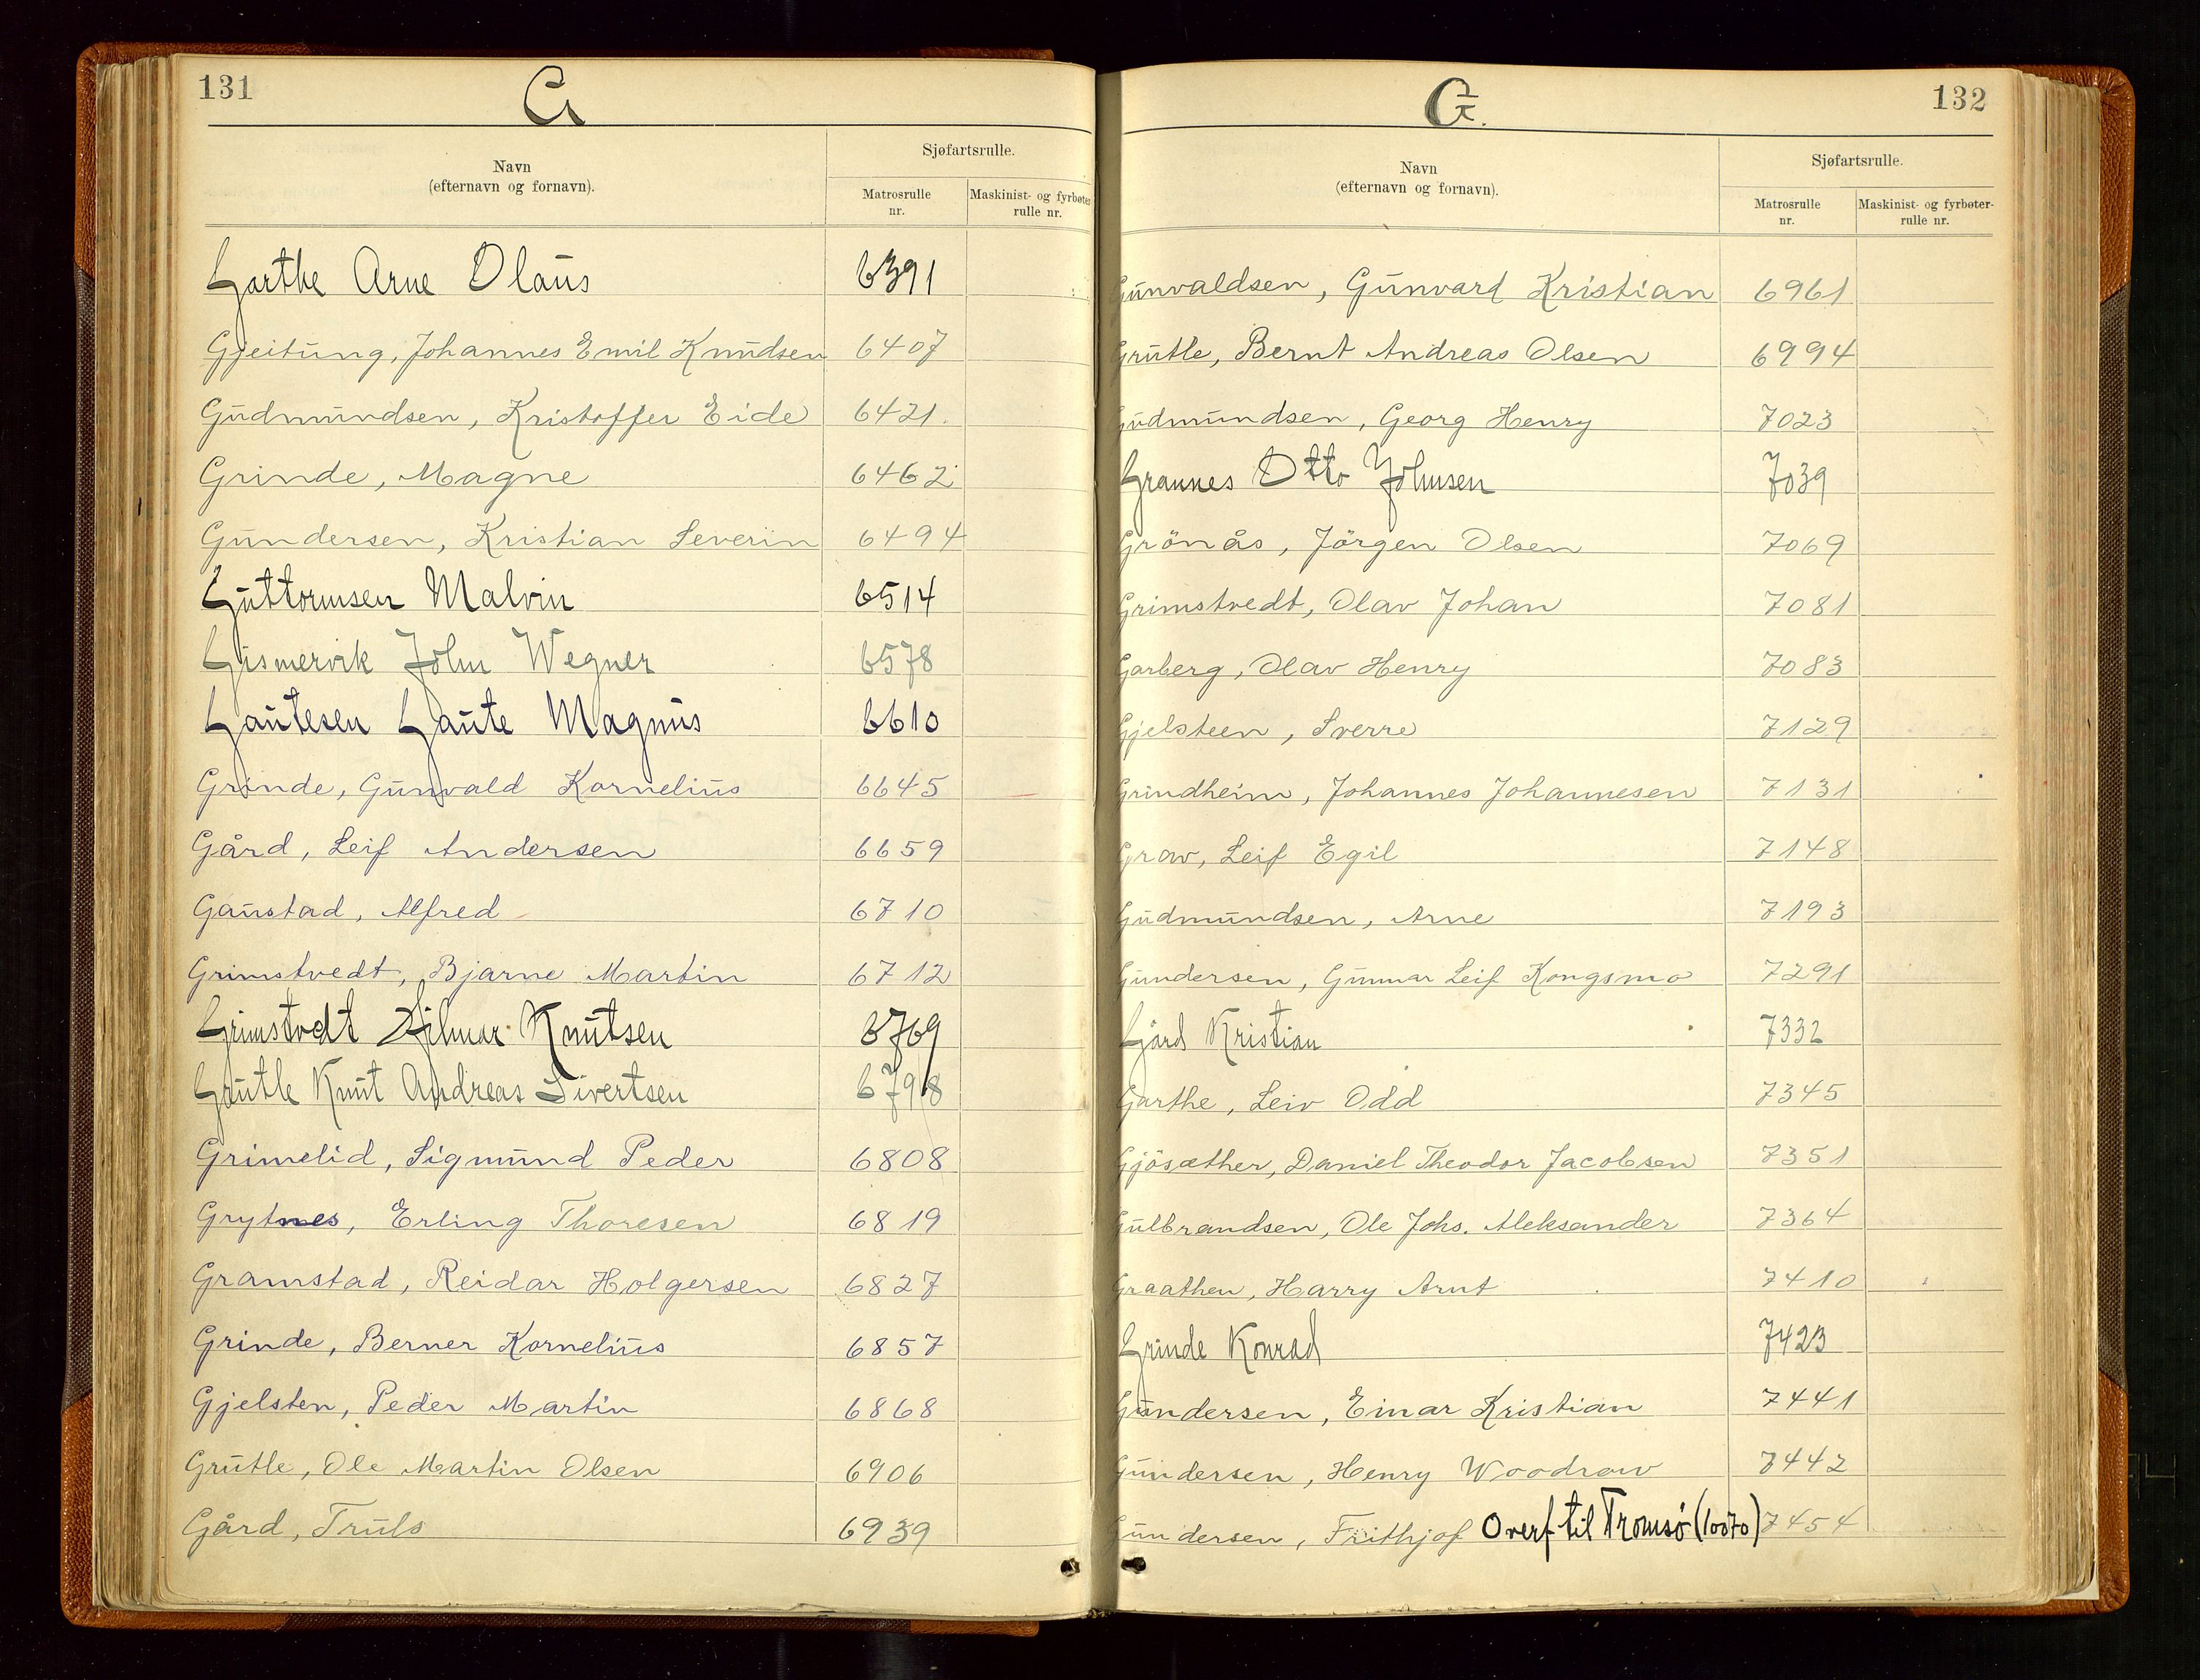 131
G
Navn
(efternavn og fornavn).
Sjøfartsrulle.
Matrosrulle
nr.
Maskinist- og fyrbøter
rulle nr.
Garthe Arne Olaus 6391
Gjeitung, Johannes Emil Knudsen 6407
Gudmundsen, Kristoffer Eide 6421
Grinde, Magne 6462
Gundersen, Kristian Severin 6494
Guttormsen Malvin 6514
Gismervik John Wegner 6578
Gautesen Gaute Magnus 6610
Grinde, Gunvald Kornelius 6645
Gård, Leif Andersen 6659
Gaustad, Alfred 6710
Grimstvedt, Bjarne Martin 6712
Grimstvedt Hilmar Knutsen 6769
Grutle Knut Andreas Sivertsen 6798
Grimelid, Sigmund Peder 6808
Grytnes, Erling Thoresen 6819
Gramstad, Reidar Holgersen 6827
Grinde, Berner Kornelius 6857
Gjelsten, Peder Martin 6868
Grutle, Ole Martin Olsen 6906
Gård, Truls 6939
G.
132
Navn
(efternavn og fornavn).
Sjøfartsrulle.
Matrosrulle
nr.
Maskinist- og fyrbøter-
rulle nr.
Gunvaldsen, Gunvard Kristian 6961
Grutle, Bernt Andreas Olsen 6994
Gudmundsen, Georg Henry 7023
Grannes Otto Johnsen 7039
Grönås, Jörgen Olsen 7069
Grimstvedt, Olav Johan 7081
Garberg, Olav Henry 7083
Gjelsteen, Sverre 7129
Grindheim, Johannes Johannesen 7131
Grav, Leif Egil 7148
Gudmundsen, Arne 7193
Gundersen, Gunnar Leif Kongsmo 7291
Gård Kristian 7332
Garthe, Leiv Odd 7345
Gjösæther, Daniel Theodor Jacobsen 7351
Gulbrandsen, Ole Johs. Aleksander 7364
Graathen, Harry Arnt 7410
Grinde Konrad 7423
Gundersen, Einar Kristian 7441
Gundersen, Henry Woodrow 7442
Gundersen, Frithjof Overf til Tromsø (10070) 7454